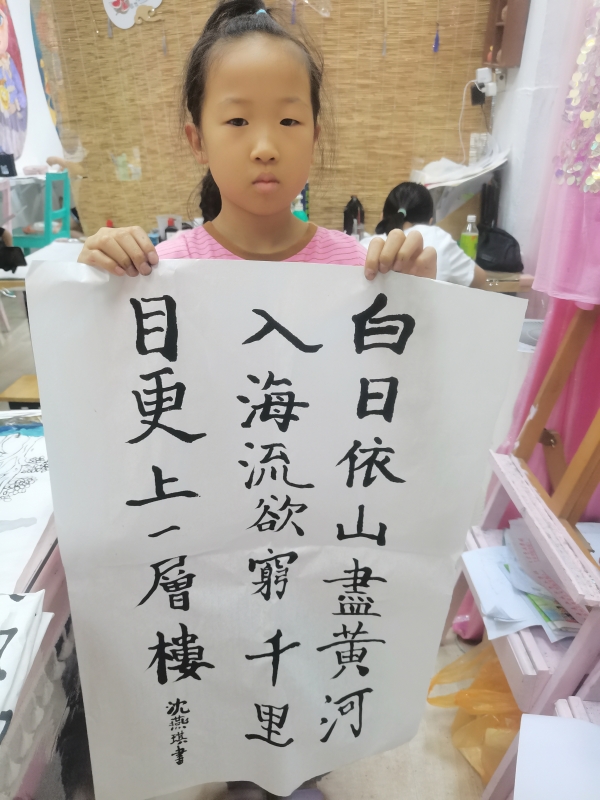 白日依山盡黃河
入海流欲窮千里
目更上一層樓
沈燕琪書